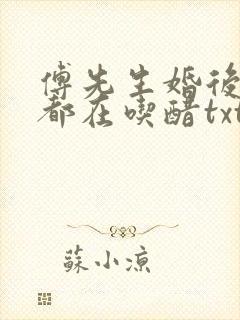 傅先生婚後
都在喫醋txt
蘇小涼